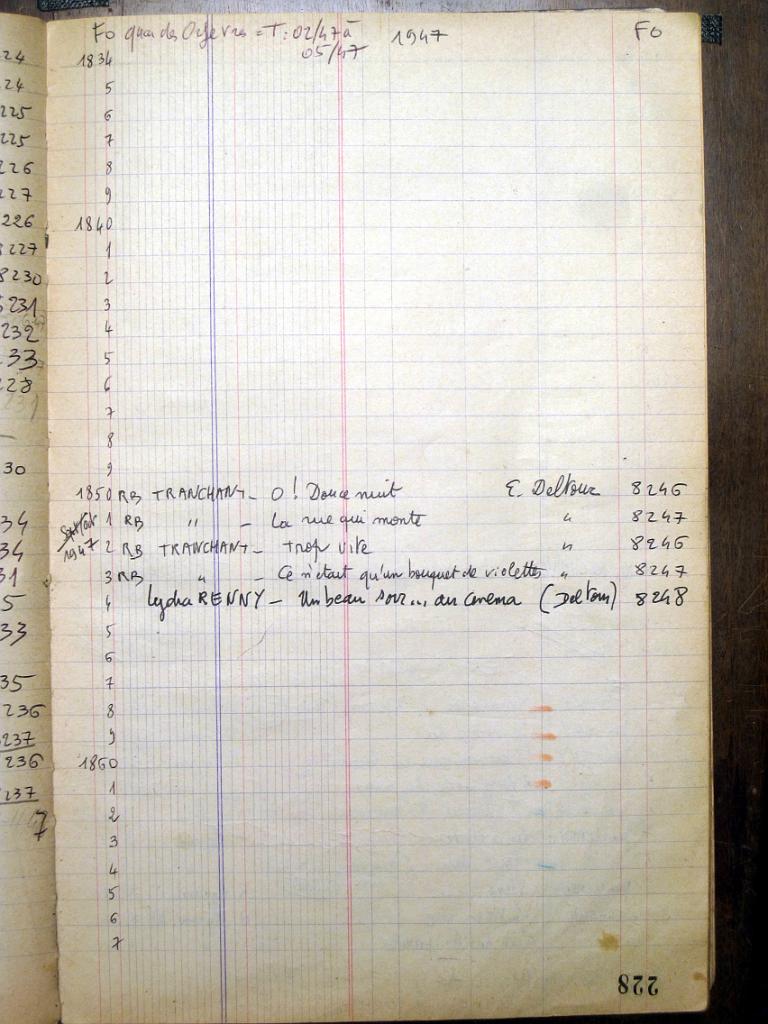 24
24
225
225
226
227
226
8227
8230
8231
232
233
228
30
34
34
31
5
33
35
236
237
236
237
7
Fo quai des Orfevres = T: 02/47 à 1947 Fo
05/47
1834
5
6
7
8
9
1840
1
2
3
4
5
6
7
8
9
1850 RB TRANCHANT - O! Douce nuit E. Deltour 8246
1 RB " - La rue qui monte " 8247
1947 2 RB TRANCHANT - Trop vite " 8246
3 RB " - Ce n'etait qu'un bouquet de violettes " 8247
4 Lydia RENNY - Un beau soir... au cinema (Deltour) 8248
5
6
7
8
9
1860
1
2
3
4
5
6
7
228